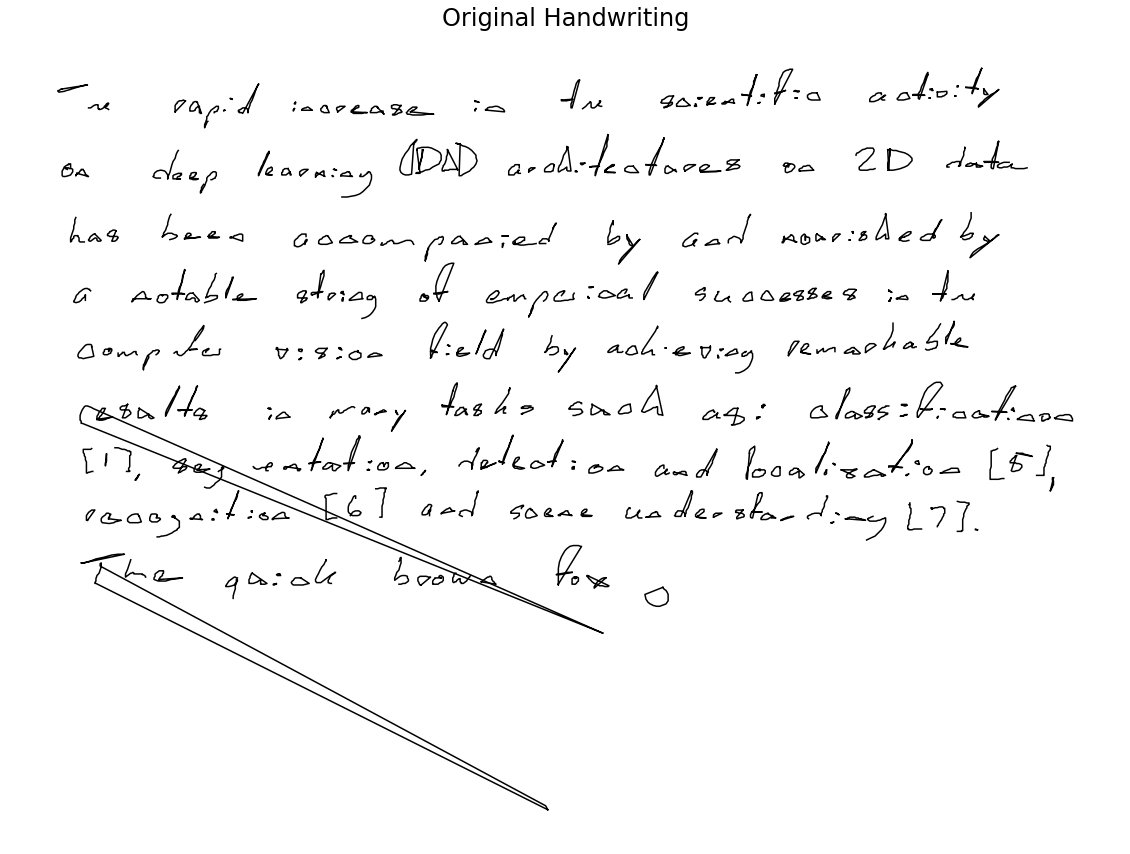 Original Handwriting
The rapid increase in the scientific activity
on deep learning (DL) architectures on 2D data
has been accompanied by and nourished by
a notable string of emperical successes in the
computer vision field by achieving remarkable
results in many tasks such as: classifications
[1], segmentation, detection and localization [5],
recognition [6] and scene understanding [7].
The quick brown fox